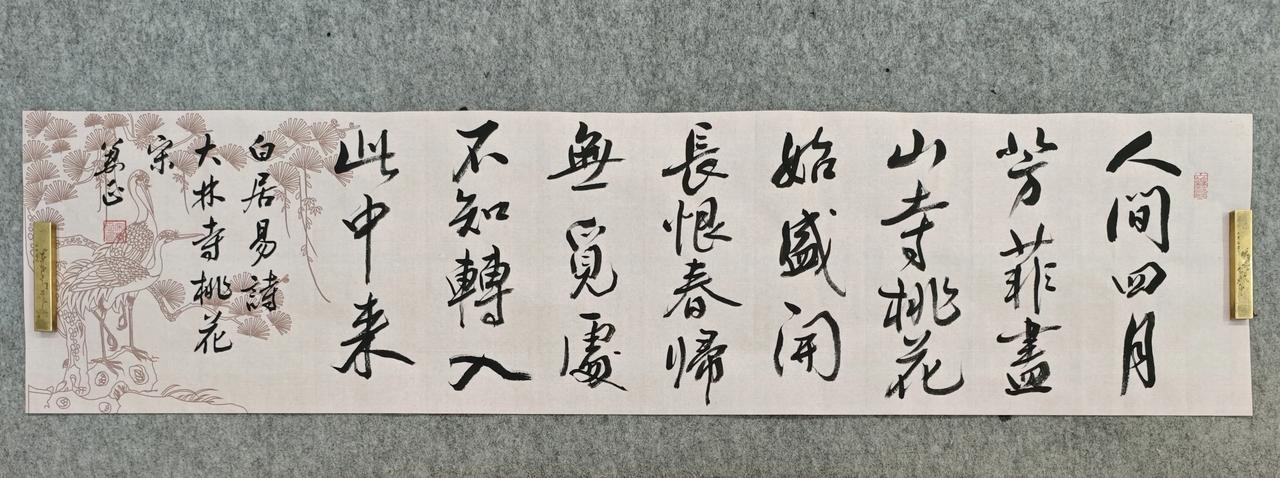 人間四月
芳菲盡
山寺桃花
始盛開
長恨春歸
無覓處
不知轉入
此中来
白居易詩
大林寺桃花
宋